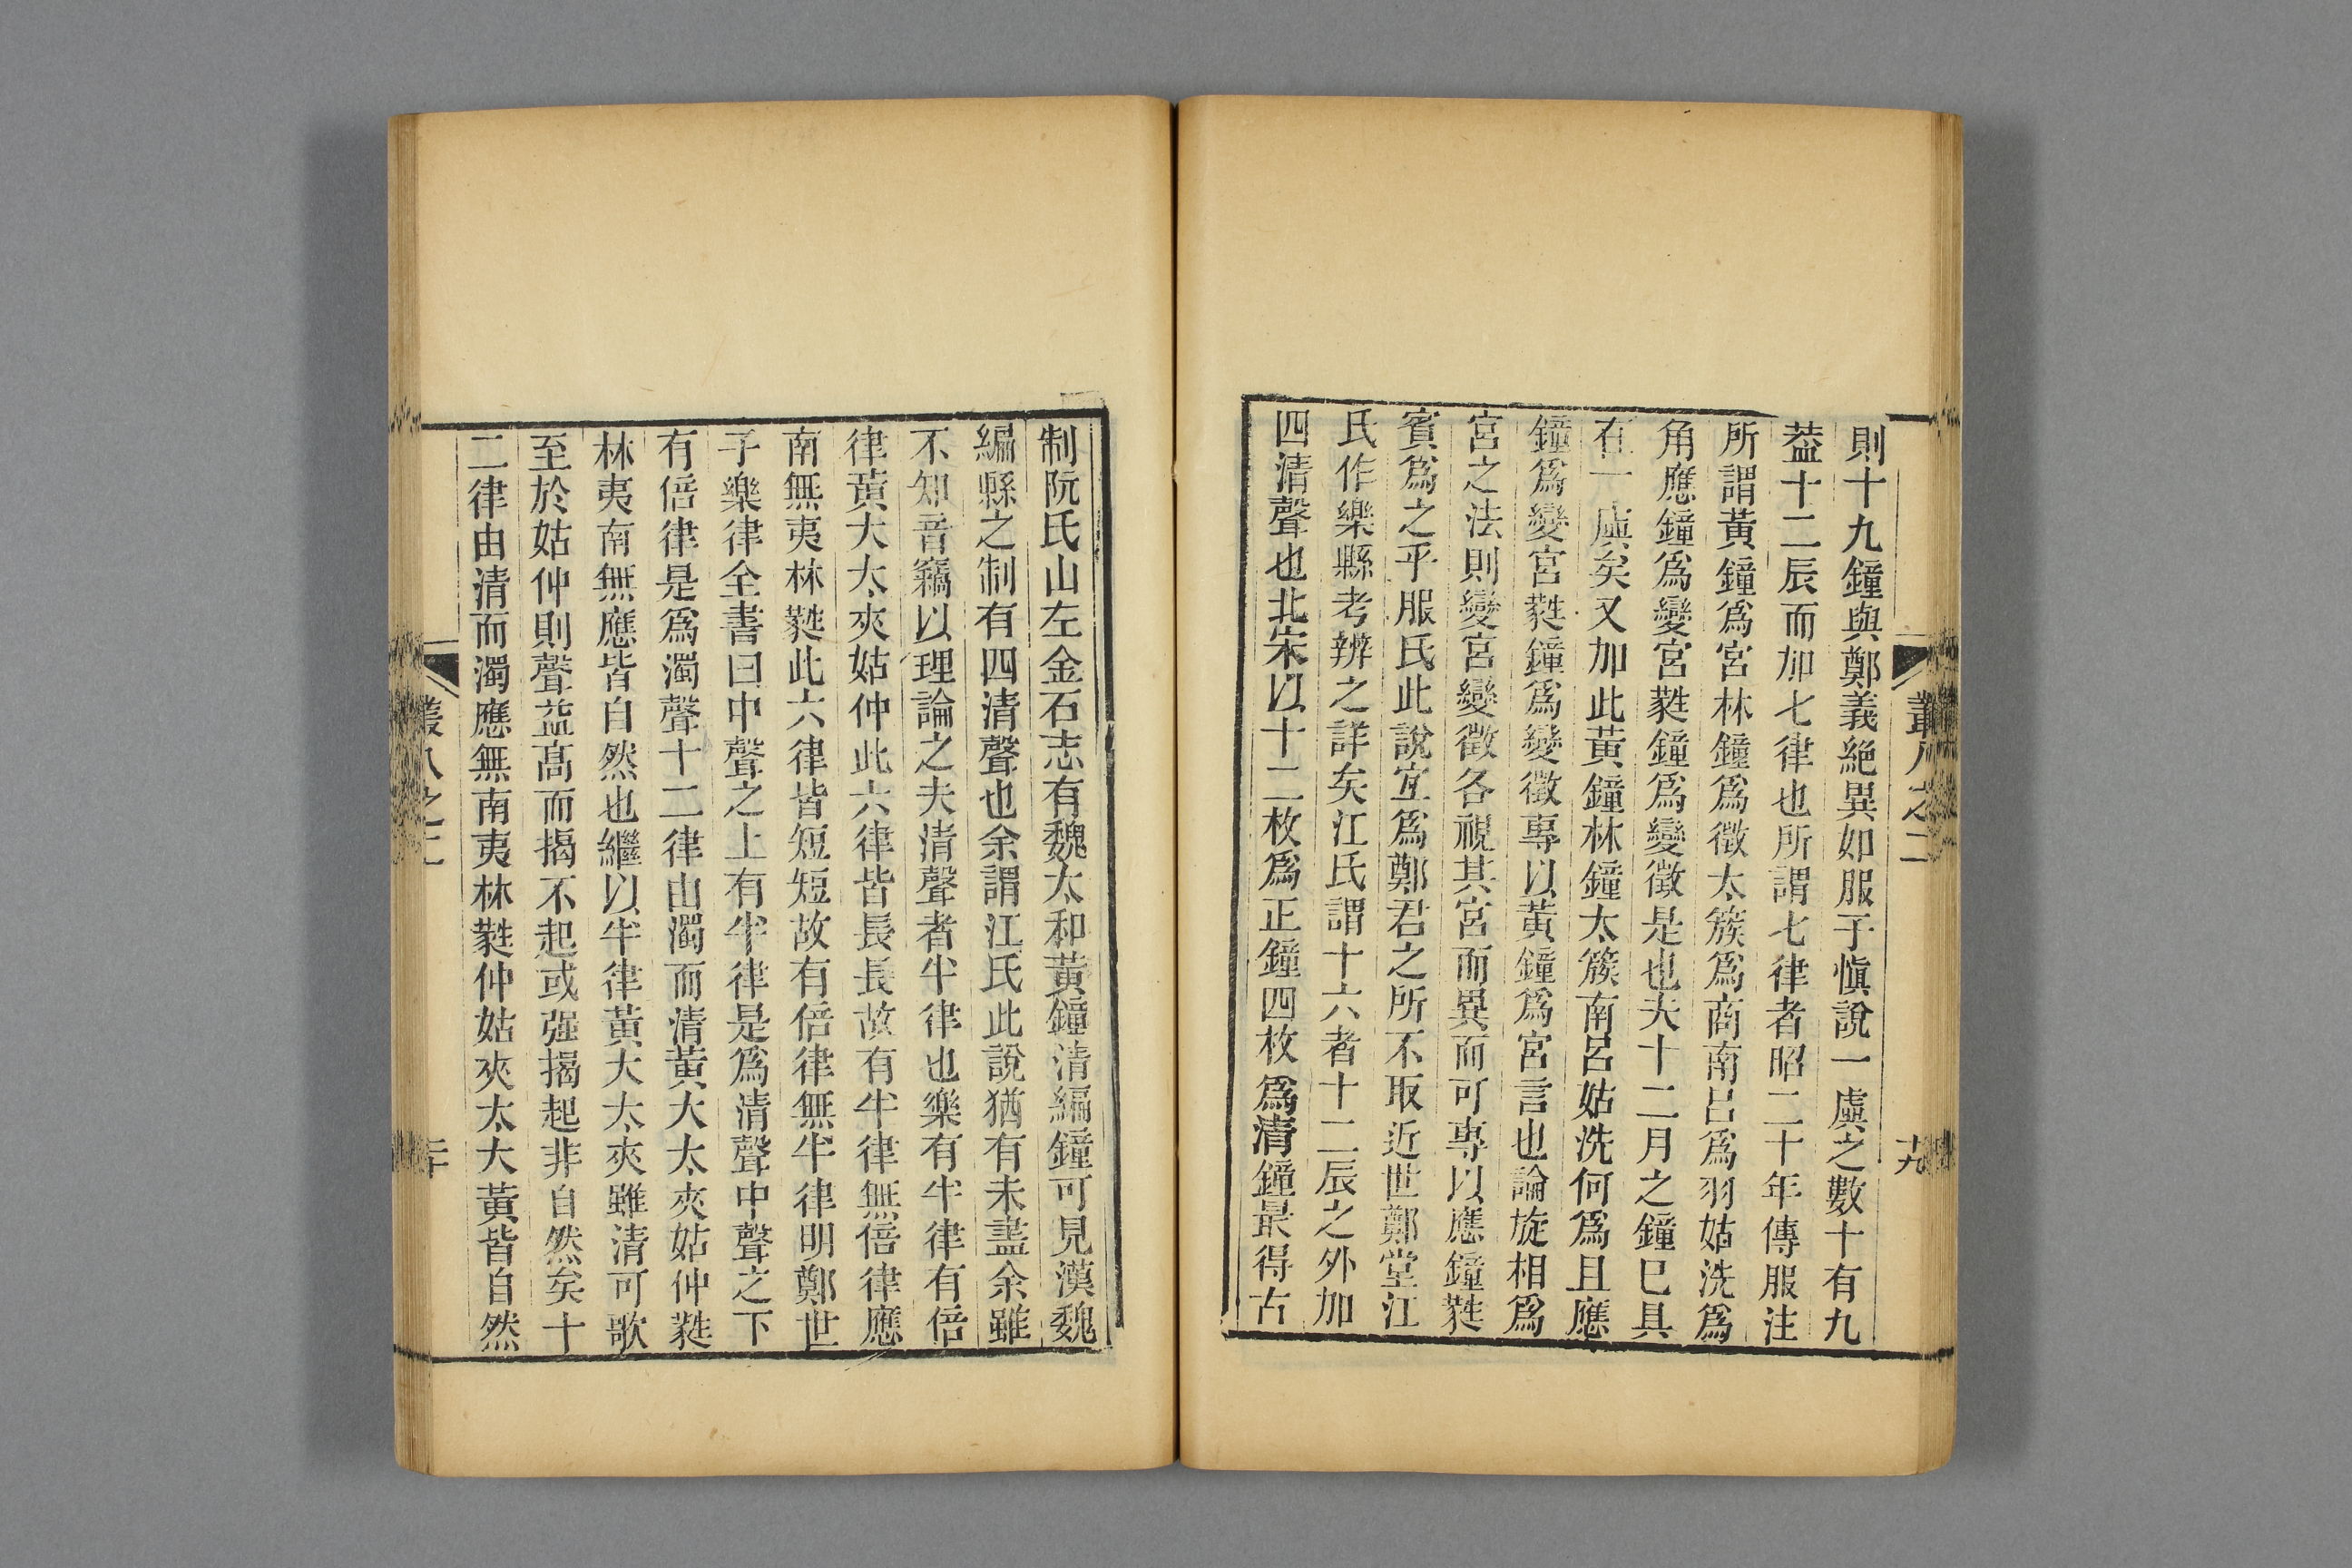 則十九鐘與鄭義絕異如服子愼說一虡之數十有九
葢十二辰而加七律也所謂七律者昭二十年傳服注
所謂黃鐘爲宮林鐘爲徵太簇爲商南呂爲羽姑洗爲
角應鐘爲變宮蕤鐘爲變徵是也夫十二月之鐘巳具
在一虡矣又加此黃鐘林鐘太簇南呂姑洗何爲且應
鐘爲變宮蕤鐘爲變徵專以黃鐘爲宮言也論旋相爲
宮之法則變宮變徵各視其宮而異而可專以應鐘蕤
賓爲之乎服氏此說宐爲鄭君之所不取近世鄭堂江
氏作樂縣考辨之詳矣江氏謂十六者十二辰之外加
四清聲也北宋以十二枚爲正鐘四枚爲清鐘最得古
叢八之二
十九
制阮氏山左金石志有魏太和黃鐘清編鐘可見漢魏
編縣之制有四清聲也余謂江氏此說猶有未盡余雖
不知音竊以理論之夫清聲者半律也樂有半律有倍
律黃大太夾姑仲此六律皆長長故有半律無倍律應
南無夷林蕤此六律皆短短故有倍律無半律明鄭世
子樂律全書曰中聲之上有半律是爲清聲中聲之下
有倍律是爲濁聲十二律由濁而清黃大太夾姑仲蕤
林夷南無應皆自然也繼以半律黃大太夾雖清可歌
至於姑仲則聲益高而揭不起或强揭起非自然矣十
二律由清而濁應無南夷林蕤仲姑夾太大黃皆自然
叢八之二
二十